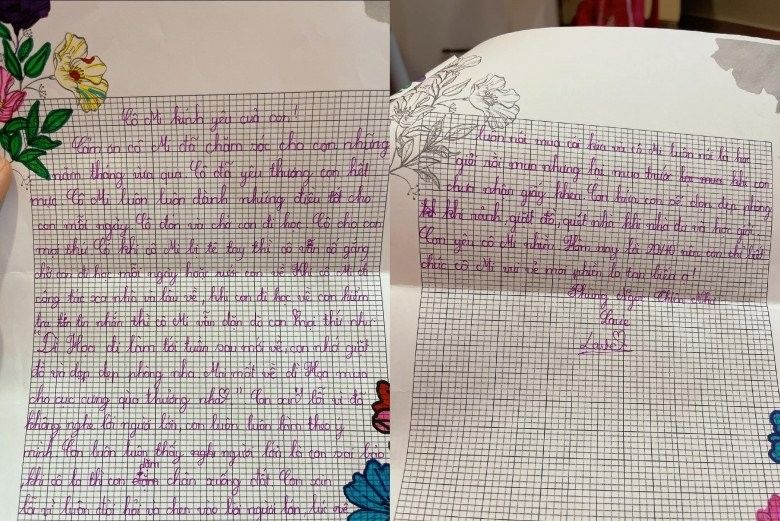 Cô Mi kính yêu của con!
Cảm ơn cô Mi đã chăm sóc cho con những
năm tháng vừa qua. Cô đã yêu thương con hết
mực. Cô Mi luôn luôn dành những điều tốt cho
con mỗi ngày. Cô đón và chở con đi học. Cô cho con
mọi thứ. Có khi cô Mi bị tê tay thì cô vẫn cố gắng
chở con đi học mỗi ngày hoặc rước con về. Khi cô Mi đi
công tác xa nhà và lâu về, khi con đi học về con kiểm
tra tin nhắn thì cô Mi vẫn dặn dò con mọi thứ như
"Dì Hoa đi làm tới tuần sau mới về, con nhớ giặt
đồ và dọp dẹp phòng nha. Mai mốt về dì Hoa mua
cho cục cưng quà thưởng nhé♡" Con xin lỗi vì đã
không nghe lời người lớn, con luôn luôn làm theo ý
mình. Con luôn luôn thấy người lớn là con
khi cô la thì con dặm chân xuống đất. Con xin
lỗi vì luôn đòi hỏi và chen vào lời người lớn, lúc
luôn nói mua cái kia và cô Mi luôn nói là học
giỏi rồi mua nhưng lại mua trước khi con
chưa nhận giấy khen. Con hứa con sẽ dọn dẹp phòng
khi rảnh, giặt đồ, quét nhà khi nhà dơ và học giỏi.
Con yêu cô Mi nhiều. Hôm nay là 20/10 nên con chỉ biết
chúc cô Mi vui vẻ mọi phiền lo tan biến ạ!
Phụng Ngọc Nhi
Love
Love♡